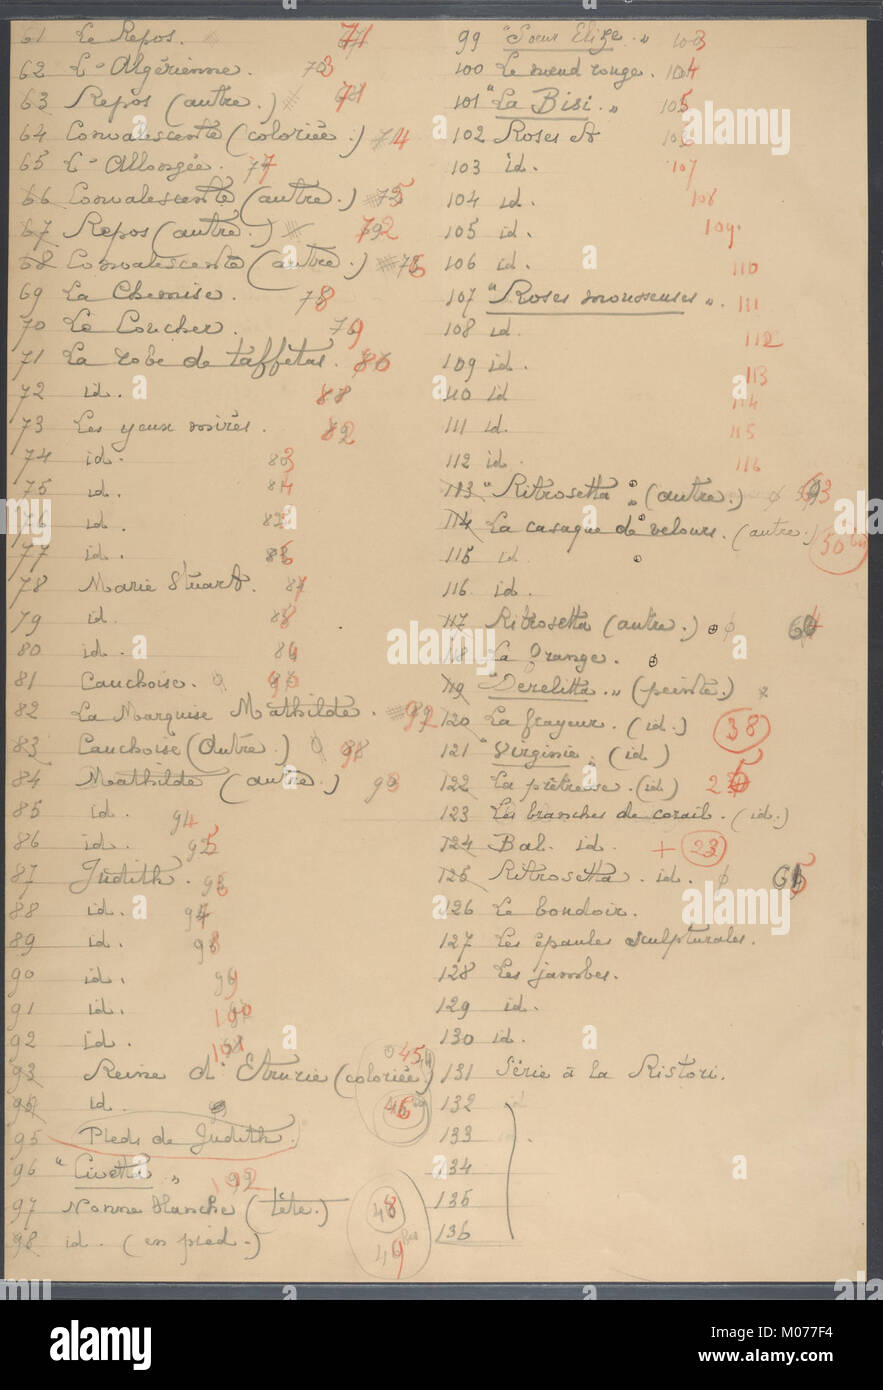 61 Le Repos. 71
62 L'Algérienne. 73
63 Repos (autre.) 71
64 Convalescente (coloriée.) 74
65 L'Allongée. 77
66 Convalescente (autre.) 75
67 Repos (autre.) 72
68 Convalescente (autre.) 76
69 La Chemise. 78
70 Le Coucher. 79
71 La robe de taffetas. 80
72 id.
73 Les yeux mirés. 82
74 id. 83
75 id. 84
76 id. 85
77 id. 86
78 Marie Stuart. 87
79 id. 88
80 id. 89
81 Cauchoise. 90
82 La Marquise Mathilde. 92
83 Cauchoise (Autre.)
84 Mathilde (autre.) 93
85 id. 94
86 id. 95
87 Judith. 96
88 id. 97
89 id. 98
90 id. 99
91 id. 100
92 id. 101
93 Reine d'Etrurie (coloriée) 45
id. 46
95 Pieds de Judith.
96 "Civetta" 102
97 Nonne blanche (tête.) 48
98 id. (en pied.) 49 bis
99 "Sœur Elize." 103
100 Le nœud rouge. 104
101 "La Bisi." 105
102 Roses et 106
103 id. 107
104 id. 108
105 id. 109.
106 id. 110
107 "Roses mousseuses". 111
108 id. 112
109 id. 113
110 id 114
111 id. 115
112 id. 116
113 "Ritrosetta" (autre.) 63
114 La casaque de velours. (autre.) 50
115 id
116 id.
117 Ritrosetta (autre.) 64
118 La Orange.
119 "Derelitta." (peinte.)
120 La frayeur. (id.) 38
121 "Virginie. (id)
122 La prêtresse. (id) 25
123 Les branches de corail. (id.)
124 Bal. id. + 23
125 Ritrosetta. id. 65
126 Le boudoir.
127 Les épaules sculpturales.
128 Les jambes.
129 id.
130 id.
131 Série à la Ristori.
132 id
133
134
135
136
alamy
Image ID: M077F4
www.alamy.com